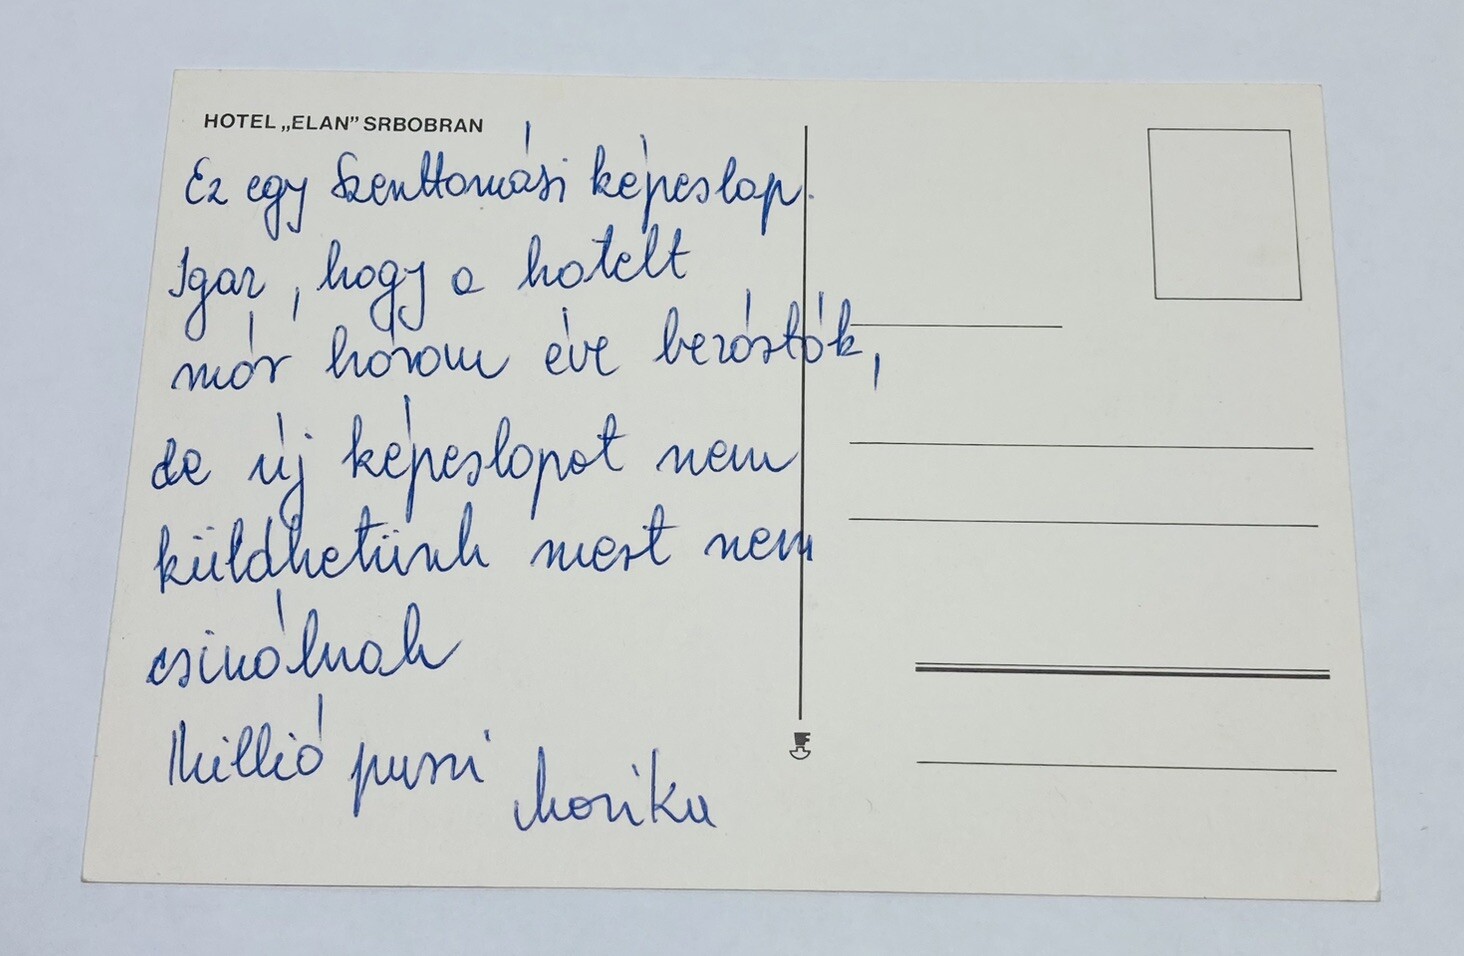 HOTEL „ELAN” SRBOBRAN
Ez egy Szenttomási képeslap.
Igaz, hogy a hotelt
már három éve bezárták,
de új képeslapot nem
küldhetünk mert nem
csinálnak
Millió puszi Marika